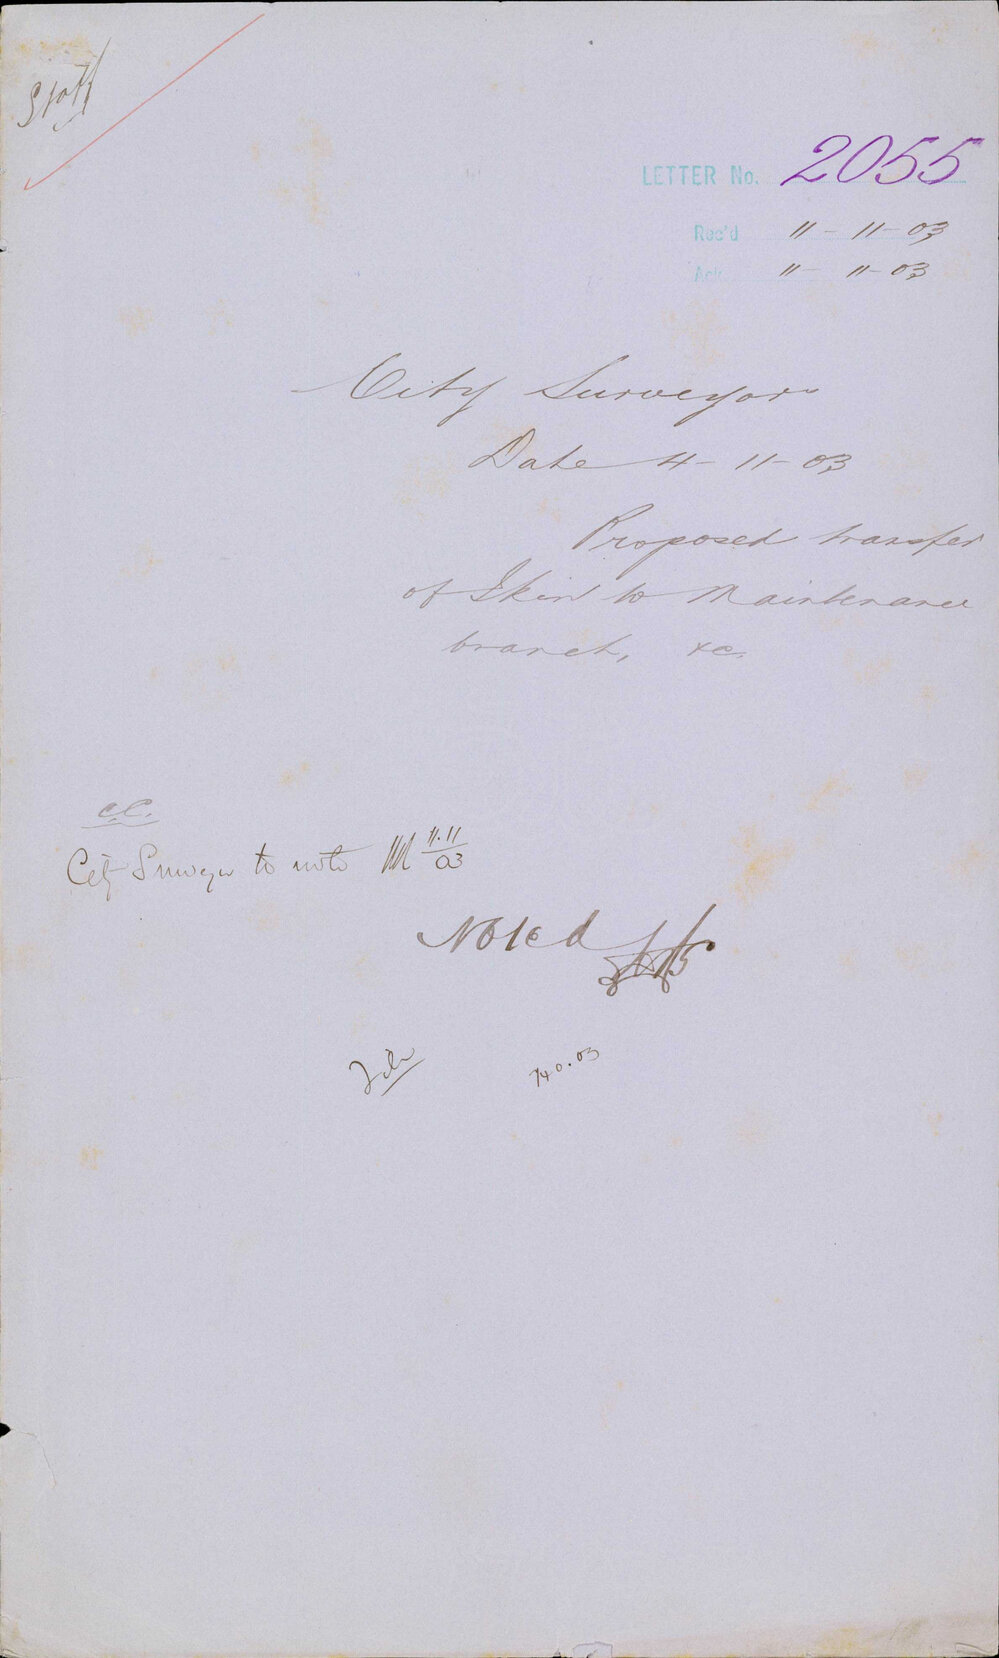 Staff
LETTER No. 2055
Rec'd 11-11-03
Ack 11-11-03
City Surveyor
Date 4-11-03
Proposed transfer
of Skin to Maintenance
branch, &c.
C.C.
City Surveyor to note 11.11
03
Noted
File 740.03